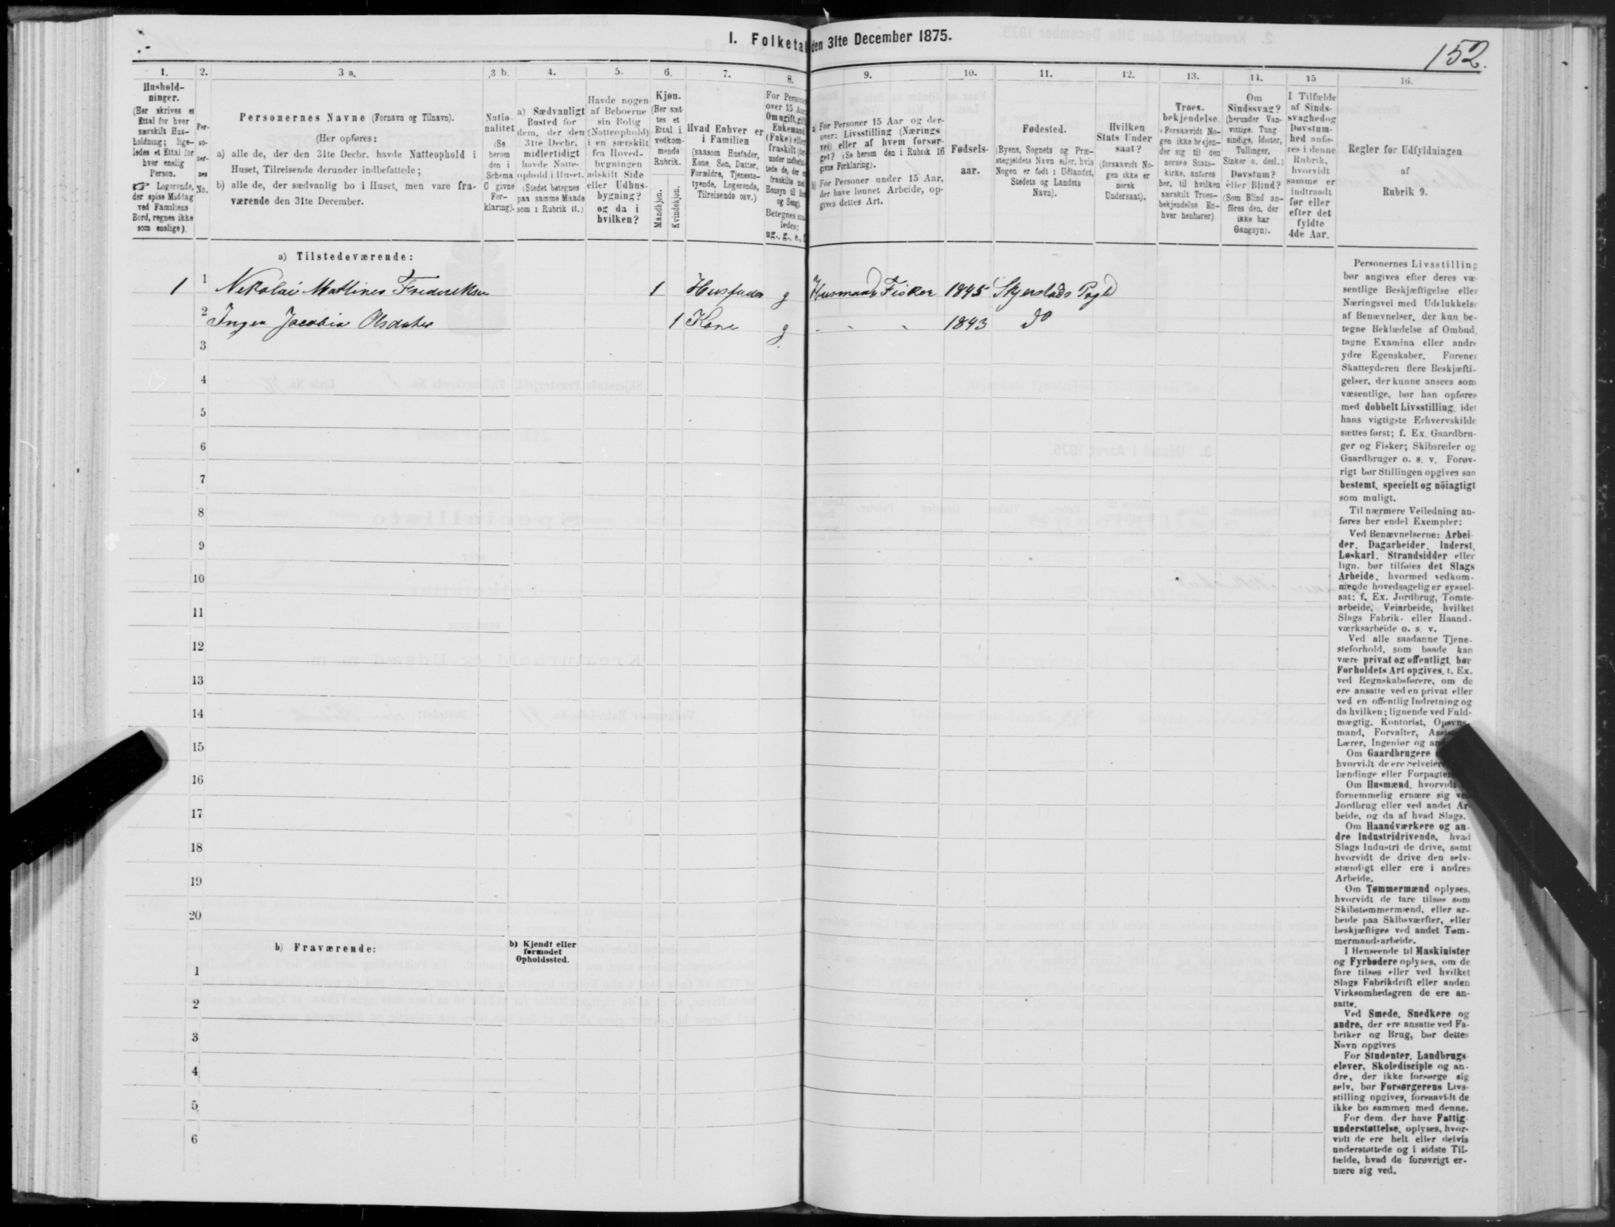 I. Folketal den 31te December 1875.
152.
1.
Hushold-
ninger.
(Her skrives et
Ettal for hver
særskilt Hus-
holdning; lige-
ledes et Ettal for
hver enslig
Person.
Logerende,
der spise Middag
ved Familiens
Bord, regnes ikke
som enslige).
2.
Per-
so-
ner-
nes
No.
3 a.
Personernes Navne (Fornavn og Tilnavn).
(Her opføres:
a) alle de, der den 31te Decbr. havde Natteophold i
Huset, Tilreisende derunder indbefattede;
b) alle de, der sædvanlig bo i Huset, men vare fra-
værende den 31te December.
3 b.
Natio-
nalitet
(Se
herom
den i
Schema
O givne
For-
klaring).
4.
a) Sædvanligt
Bosted for
dem, der den
31te Decbr.
midlertidigt
havde Natte-
ophold i Huset.
(Stedet betegnes
paa samme Maade
som i Rubrik 11.)
5.
Havde nogen
af Beboerne
sin Bolig
(Natteophold)
i en særskilt
fra Hoved-
bygningen
adskilt Side
eller Udhus-
bygning?
og da i
hvilken?
6.
Kjøn.
(Her sæt-
tes et
Ettal i
vedkom-
mende
Rubrik.
Mandkjøn.
Kvindekjøn.
7.
Hvad Enhver er
i Familien
(saasom Husfader,
Kone, Søn, Datter,
Forældre, Tjeneste-
tyende, Logerende,
Tilreisende osv.)
8.
For Personer
over 15 Aar
Om ugift, gift,
Enkemand
(Enke) eller
fraskilt
Betegnes saa-
ledes:
ug., g., e.,
9.
a) For Personer 15 Aar og der-
over: Livsstilling (Nærings
vei) eller af hvem forsør-
get? (Se herom den i Rubrik 16
givne Forklaring).
b) For Personer under 15 Aar,
der have lønnet Arbeide, op-
gives dettes Art.
10.
Fødsels-
aar.
11.
Fødested.
(Byens, Sognets og Præ-
stegjeldets Navn eller, hvis
Nogen er født i Udlandet,
Stedets og Landets
Navn).
12.
Hvilken
Stats Under
saat?
(forsaavidt No-
gen ikke er
norsk
Undersaat).
13.
Troes-
bekjendelse.
(Forsaavidt No-
gen ikke bekjen-
der sig til den
norske Stats-
kirke, anføres
her, til hvilken
særskilt Troes-
bekjendelse En-
hver henhører)
14.
Om
Sindssvag?
(herunder Van-
vittige, Tung
sindige, Idioter,
Tullinger,
Sinker o. desl.)
Døvstum?
eller Blind?
(Som Blind an-
føres den, der
ikke har
Gangsyn).
15
I Tilfælde
af Sinds-
svaghed og
Døvstum-
hed anfø-
res i denne
Rubrik,
hvorvidt
samme er
indtraadt
før eller
efter det
fyldte
4de Aar.
16.
Regler for Udfyldningen
af
Rubrik 9.
a) Tilstedeværende:
1 1 Nikolai Mathines Frederiksen 1 Husfader g Husmand Fisker 1845 Skjerstads Pgld
2 Inger Jacobia Olsdatter 1 Kone g - - - 1843 Do
3
4
5
6
7
8
9
10
11
12
13
14
15
16
17
18
19
20
b) Fraværende:
b) Kjendt eller
formodet
Opholdssted.
1
2
3
4
5
6
Personernes Livsstilling
bør angives efter deres væ-
sentlige Beskjæftigelse eller
Næringsvei med Udelukkelse
af Benævnelser, der kun be-
tegne Beklædelse af Ombud,
tagne Examina eller andre
ydre Egenskaber. Forener
Skatteyderen flere Beskjæfti-
gelser, der kunne ansees som
væsentlige, bør han opføres
med dobbelt Livsstilling, idet
hans vigtigste Erhvervskilde
sættes først; f. Ex. Gaardbru-
ger og Fisker; Skibsreder og
Gaardbruger o. s. v. Forøv-
rigt bør Stillingen opgives saa
bestemt, specielt og nöiagtigt
som muligt.
Til nærmere Veiledning an-
føres her endel Exempler:
Ved Benævnelserne: Arbei-
der, Dagarbeider, Inderst,
Løskarl, Strandsidder eller
lign. bør tilføies det Slags
Arbeide, hvormed vedkom-
mende hovedsagelig er syssel-
sat; f. Ex. Jordbrug, Tomte-
arbeide, Veiarbeide, hvilket
Slags Fabrik- eller Haand-
værksarbeide o. s. v.
Ved alle saadanne Tjene-
steforhold, som baade kan
være privat og offentligt, bør
Forholdets Art opgives, t. Ex.
ved Regnskabsførere, om de
ere ansatte ved en privat eller
ved en offentlig Indretning og
da hvilken; lignende ved Fuld-
mægtig, Kontorist, Opsyns-
mand, Forvalter,
Lærer, Ingeniør og
Om Gaardbrugere
hvorvidt de ere Selveiere
lændinge eller Forpagtere
Om Husmænd, hvorvidt
fornemmelig ernære sig ved
Jordbrug eller ved andet Ar-
beide, og da af hvad Slags.
Om Haandværkere og an-
dre Industridrivende, hvad
Slags Industri de drive, samt
hvorvidt de drive den selv-
stændigt eller ere i andres
Arbeide.
Om Tømmermænd oplyses,
hvorvidt de fare tilsøs som
Skibstømmermænd, eller ar-
beide paa Skibsværfter, eller
beskjæftiges ved andet Tøm-
mermandsarbeide.
I Henseende til Maskinister
og Fyrbødere oplyses, om de
fare tilsøs eller ved hvilket
Slags Fabrikdrift eller anden
Virksomhedsgren de ere an-
satte.
Ved Smede, Snedkere og
andre, der ere ansatte ved Fa-
briker og Brug, bør dettes
Navn opgives
For Studenter, Landbrugs-
elever, Skoledisciple og an-
dre, der ikke forsørge sig
selv, bør Forsørgerens Livs-
stilling opgives, forsaavidt de
ikke bo sammen med denne.
For dem, der have Fattig-
understøttelse, oplyses, hvor-
vidt de ere helt eller delvis
understøttede og i sidste Til-
fælde, hvad de forøvrigt er-
nære sig ved.